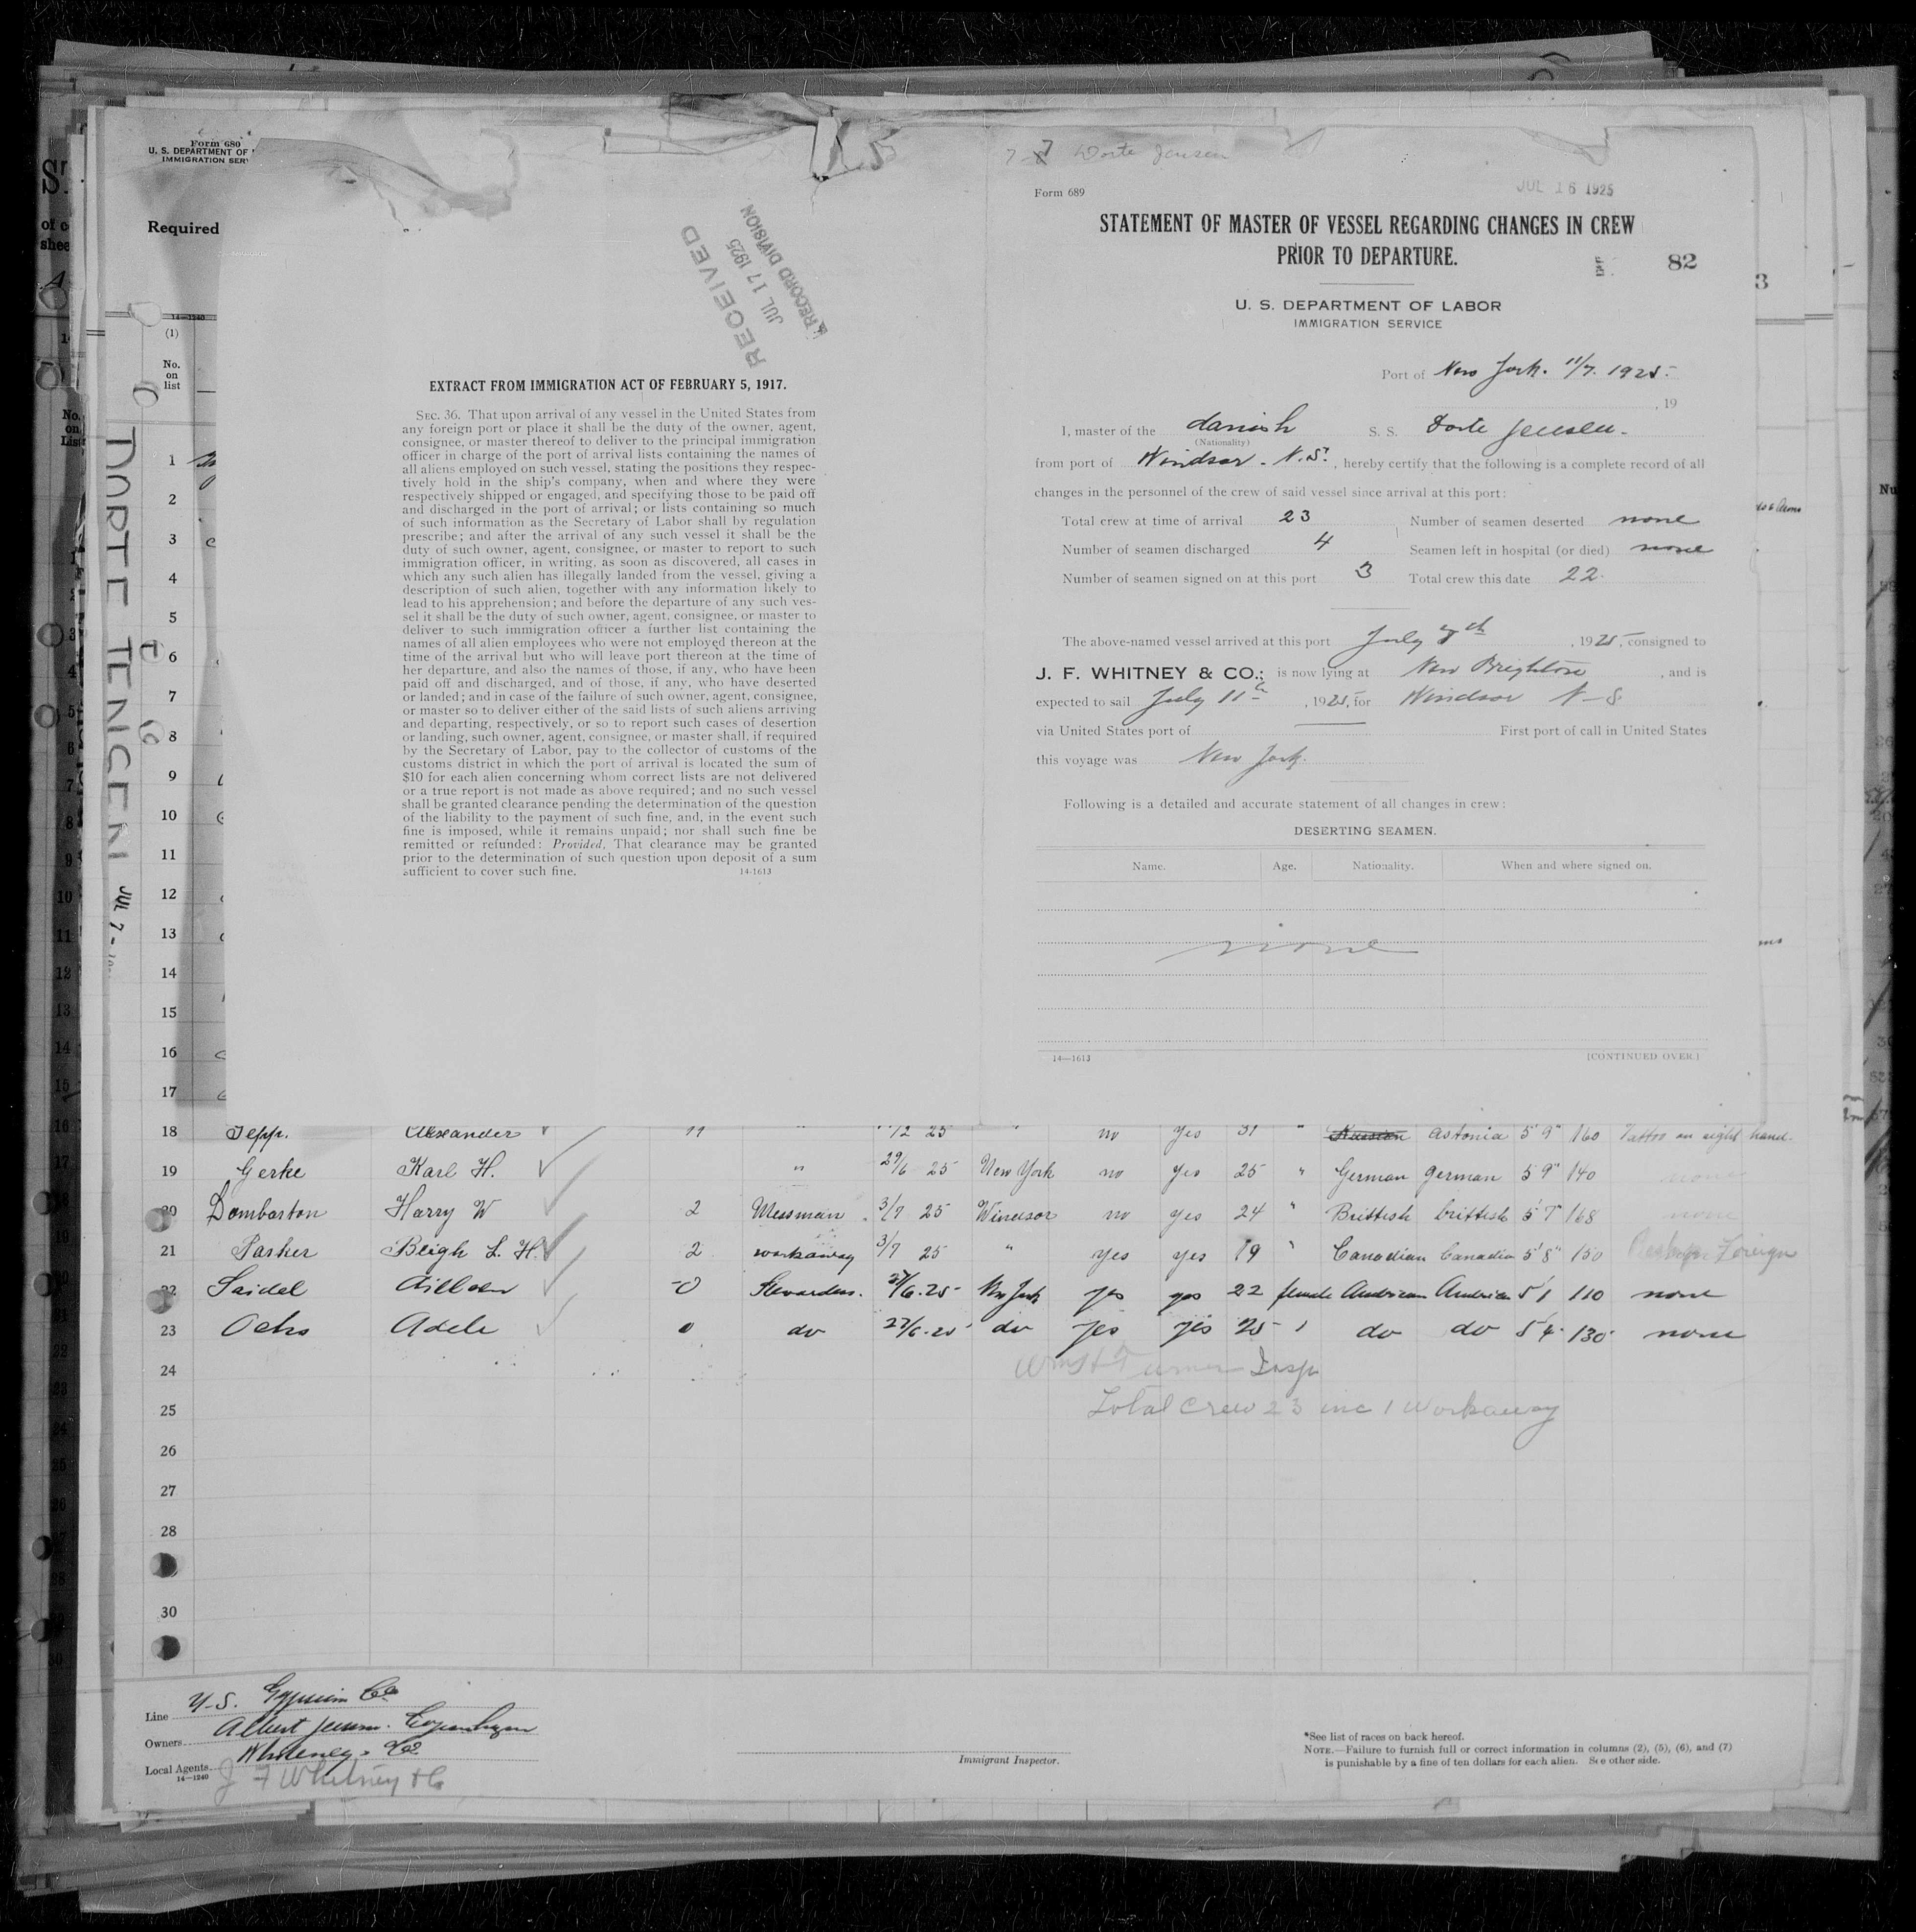 Form 680
U. S. DEPARTMENT OF
IMMIGRATION SER
Required
14—1240
(1)
No.
on
list
DORTE JENSEN JUL 7 -
1
2
3
4
5
6
7
8
9
10
11
12
13
14
15
16
17
RECEIVED
JUL 17 1925
RECORD DIVISION
EXTRACT FROM IMMIGRATION ACT OF FEBRUARY 5, 1917.
SEC. 36. That upon arrival of any vessel in the United States from
any foreign port or place it shall be the duty of the owner, agent,
consignee, or master thereof to deliver to the principal immigration
officer in charge of the port of arrival lists containing the names of
all aliens employed on such vessel, stating the positions they respec-
tively hold in the ship's company, when and where they were
respectively shipped or engaged, and specifying those to be paid off
and discharged in the port of arrival; or lists containing so much
of such information as the Secretary of Labor shall by regulation
prescribe; and after the arrival of any such vessel it shall be the
duty of such owner, agent, consignee, or master to report to such
immigration officer, in writing, as soon as discovered, all cases in
which any such alien has illegally landed from the vessel, giving a
description of such alien, together with any information likely to
lead to his apprehension; and before the departure of any such ves-
sel it shall be the duty of such owner, agent, consignee, or master to
deliver to such immigration officer a further list containing the
names of all alien employees who were not employed thereon at the
time of the arrival but who will leave port thereon at the time of
her departure, and also the names of those, if any, who have been
paid off and discharged, and of those, if any, who have deserted
or landed; and in case of the failure of such owner, agent, consignee,
or master so to deliver either of the said lists of such aliens arriving
and departing, respectively, or so to report such cases of desertion
or landing, such owner, agent, consignee, or master shall, if required
by the Secretary of Labor, pay to the collector of customs of the
customs district in which the port of arrival is located the sum of
$10 for each alien concerning whom correct lists are not delivered
or a true report is not made as above required; and no such vessel
shall be granted clearance pending the determination of the question
of the liability to the payment of such fine, and, in the event such
fine is imposed, while it remains unpaid; nor shall such fine be
remitted or refunded: Provided, That clearance may be granted
prior to the determination of such question upon deposit of a sum
sufficient to cover such fine.
14-1613
Dorte Jensen
Form 689
JUL 16 1925
STATEMENT OF MASTER OF VESSEL REGARDING CHANGES IN CREW
PRIOR TO DEPARTURE.
82
U. S. DEPARTMENT OF LABOR
IMMIGRATION SERVICE
Port of New York. 11/7. 1925.
, 19
I, master of the danish S. S. Dorte Jensen.
(Nationality)
from port of Windsor. N.S., hereby certify that the following is a complete record of all
changes in the personnel of the crew of said vessel since arrival at this port:
Total crew at time of arrival 23 Number of seamen deserted none
Number of seamen discharged 4 Seamen left in hospital (or died) none
Number of seamen signed on at this port 3 Total crew this date 22.
The above-named vessel arrived at this port July 7th, 1925, consigned to
J. F. WHITNEY & CO.; is now lying at New Brighton, and is
expected to sail July 11th, 1925, for Windsor N-S
via United States port of — First port of call in United States
this voyage was New York.
Following is a detailed and accurate statement of all changes in crew:
DESERTING SEAMEN.
Name. Age. Nationality. When and where signed on.
none
14—1613 [CONTINUED OVER.]
18 Jepp. Alexander 11 " 25 " no yes 31 " Russian Astonia 5' 9" 160 Tattoo on right hand.
19 Gerke Karl H. " 29/6 25 New York no yes 25 " German german 5 9" 140 none
20 Dombarton Harry W 2 Messman 3/7 25 Windsor no yes 24 " Brittish brittish 5' 7" 168 none
21 Parker Bleigh L. H. 2 workaway 3/7 25 " yes yes 19 " Canadian Canadia 5' 8" 150 Foreign
22 Saidel 0 Stewardess. 27/6.25 New York yes yes 22 female American American 5' 1 110 none
23 Ochs Adele 0 do 27/6.25 do yes yes 25 " do do 5' 4 130 none
24 Wm H Turner Insp
25 Total Crew 23 inc 1 Workaway
26
27
28
30
Line U.S. Gypsum Co
Owners Albert Jensen. Copenhagen
Local Agents Whiteney & Co
14—1240
J F Whitney & Co
Immigrant Inspector.
*See list of races on back hereof.
NOTE.—Failure to furnish full or correct information in columns (2), (5), (6), and (7)
is punishable by a fine of ten dollars for each alien. See other side.